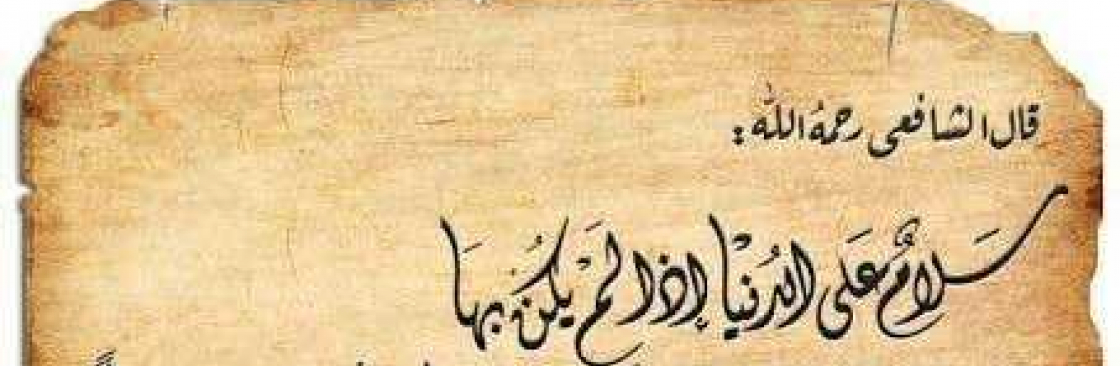 قال الشافعي رحمهُ الله :
سَلامٌ عَلى الدُنْيَا إذا لَمْ يَكُنْ بِهَا